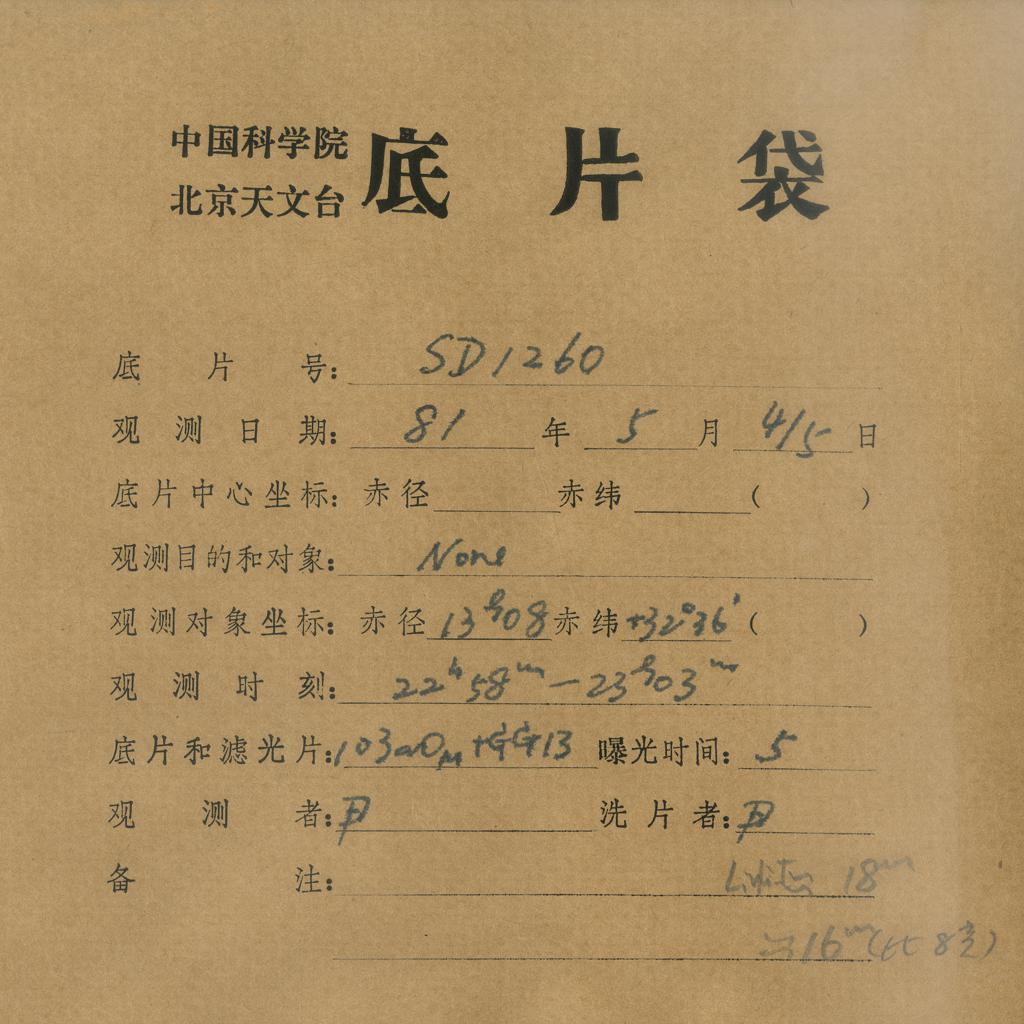 中国科学院
北京天文台
底片袋
底片号: SD1260
观测日期: 81年5月4/5日
底片中心坐标: 赤径 赤纬 ( )
观测目的和对象: None
观测对象坐标: 赤径 13h08 赤纬 +32°36′ ( )
观测时刻: 22h58m—23h03m
底片和滤光片: 103aOM+GG13 曝光时间: 5
观测者: 洗片者:
备注: 18m
16m